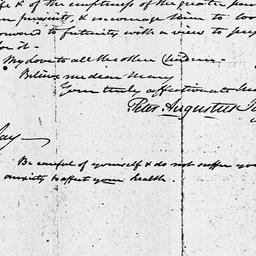 & of the emptiness of the greater
proximity, & encourage them to loo
forward to futurity with a view to
for it -
My love to all the other Children -
Believe me dear Mary
Your truly affectionate
Peter Augustus
Jay -
Be careful of yourself & do not suffer you
anxiety to affect your health.